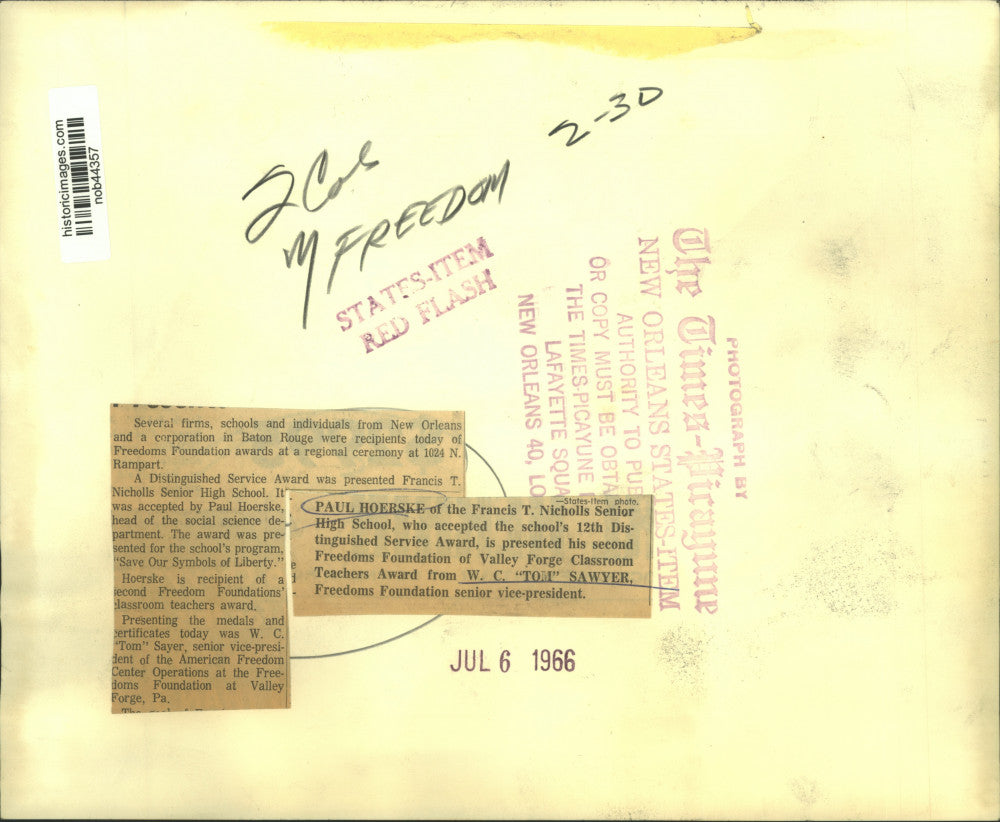 historicimages.com
nob44357
2-30
2 Col
M FREEDOM
STATES-ITEM
RED FLASH
PHOTOGRAPH BY
The Times-Picayune
NEW ORLEANS STATES-ITEM
AUTHORITY TO PUB
OR COPY MUST BE OBTA
THE TIMES-PICAYUNE
LAFAYETTE SQUA
NEW ORLEANS 40, LO
Several firms, schools and individuals from New Orleans
and a corporation in Baton Rouge were recipients today of
Freedoms Foundation awards at a regional ceremony at 1024 N.
Rampart.
A Distinguished Service Award was presented Francis T.
Nicholls Senior High School. It
was accepted by Paul Hoerske,
head of the social science de-
partment. The award was pre-
sented for the school's program,
"Save Our Symbols of Liberty."
Hoerske is recipient of a
second Freedom Foundations'
classroom teachers award.
Presenting the medals and
certificates today was W. C.
"Tom" Sayer, senior vice-presi-
dent of the American Freedom
Center Operations at the Free-
doms Foundation at Valley
Forge, Pa.
—States-Item photo.
PAUL HOERSKE of the Francis T. Nicholls Senior
High School, who accepted the school's 12th Dis-
tinguished Service Award, is presented his second
Freedoms Foundation of Valley Forge Classroom
Teachers Award from W. C. "TOM" SAWYER,
Freedoms Foundation senior vice-president.
JUL 6 1966